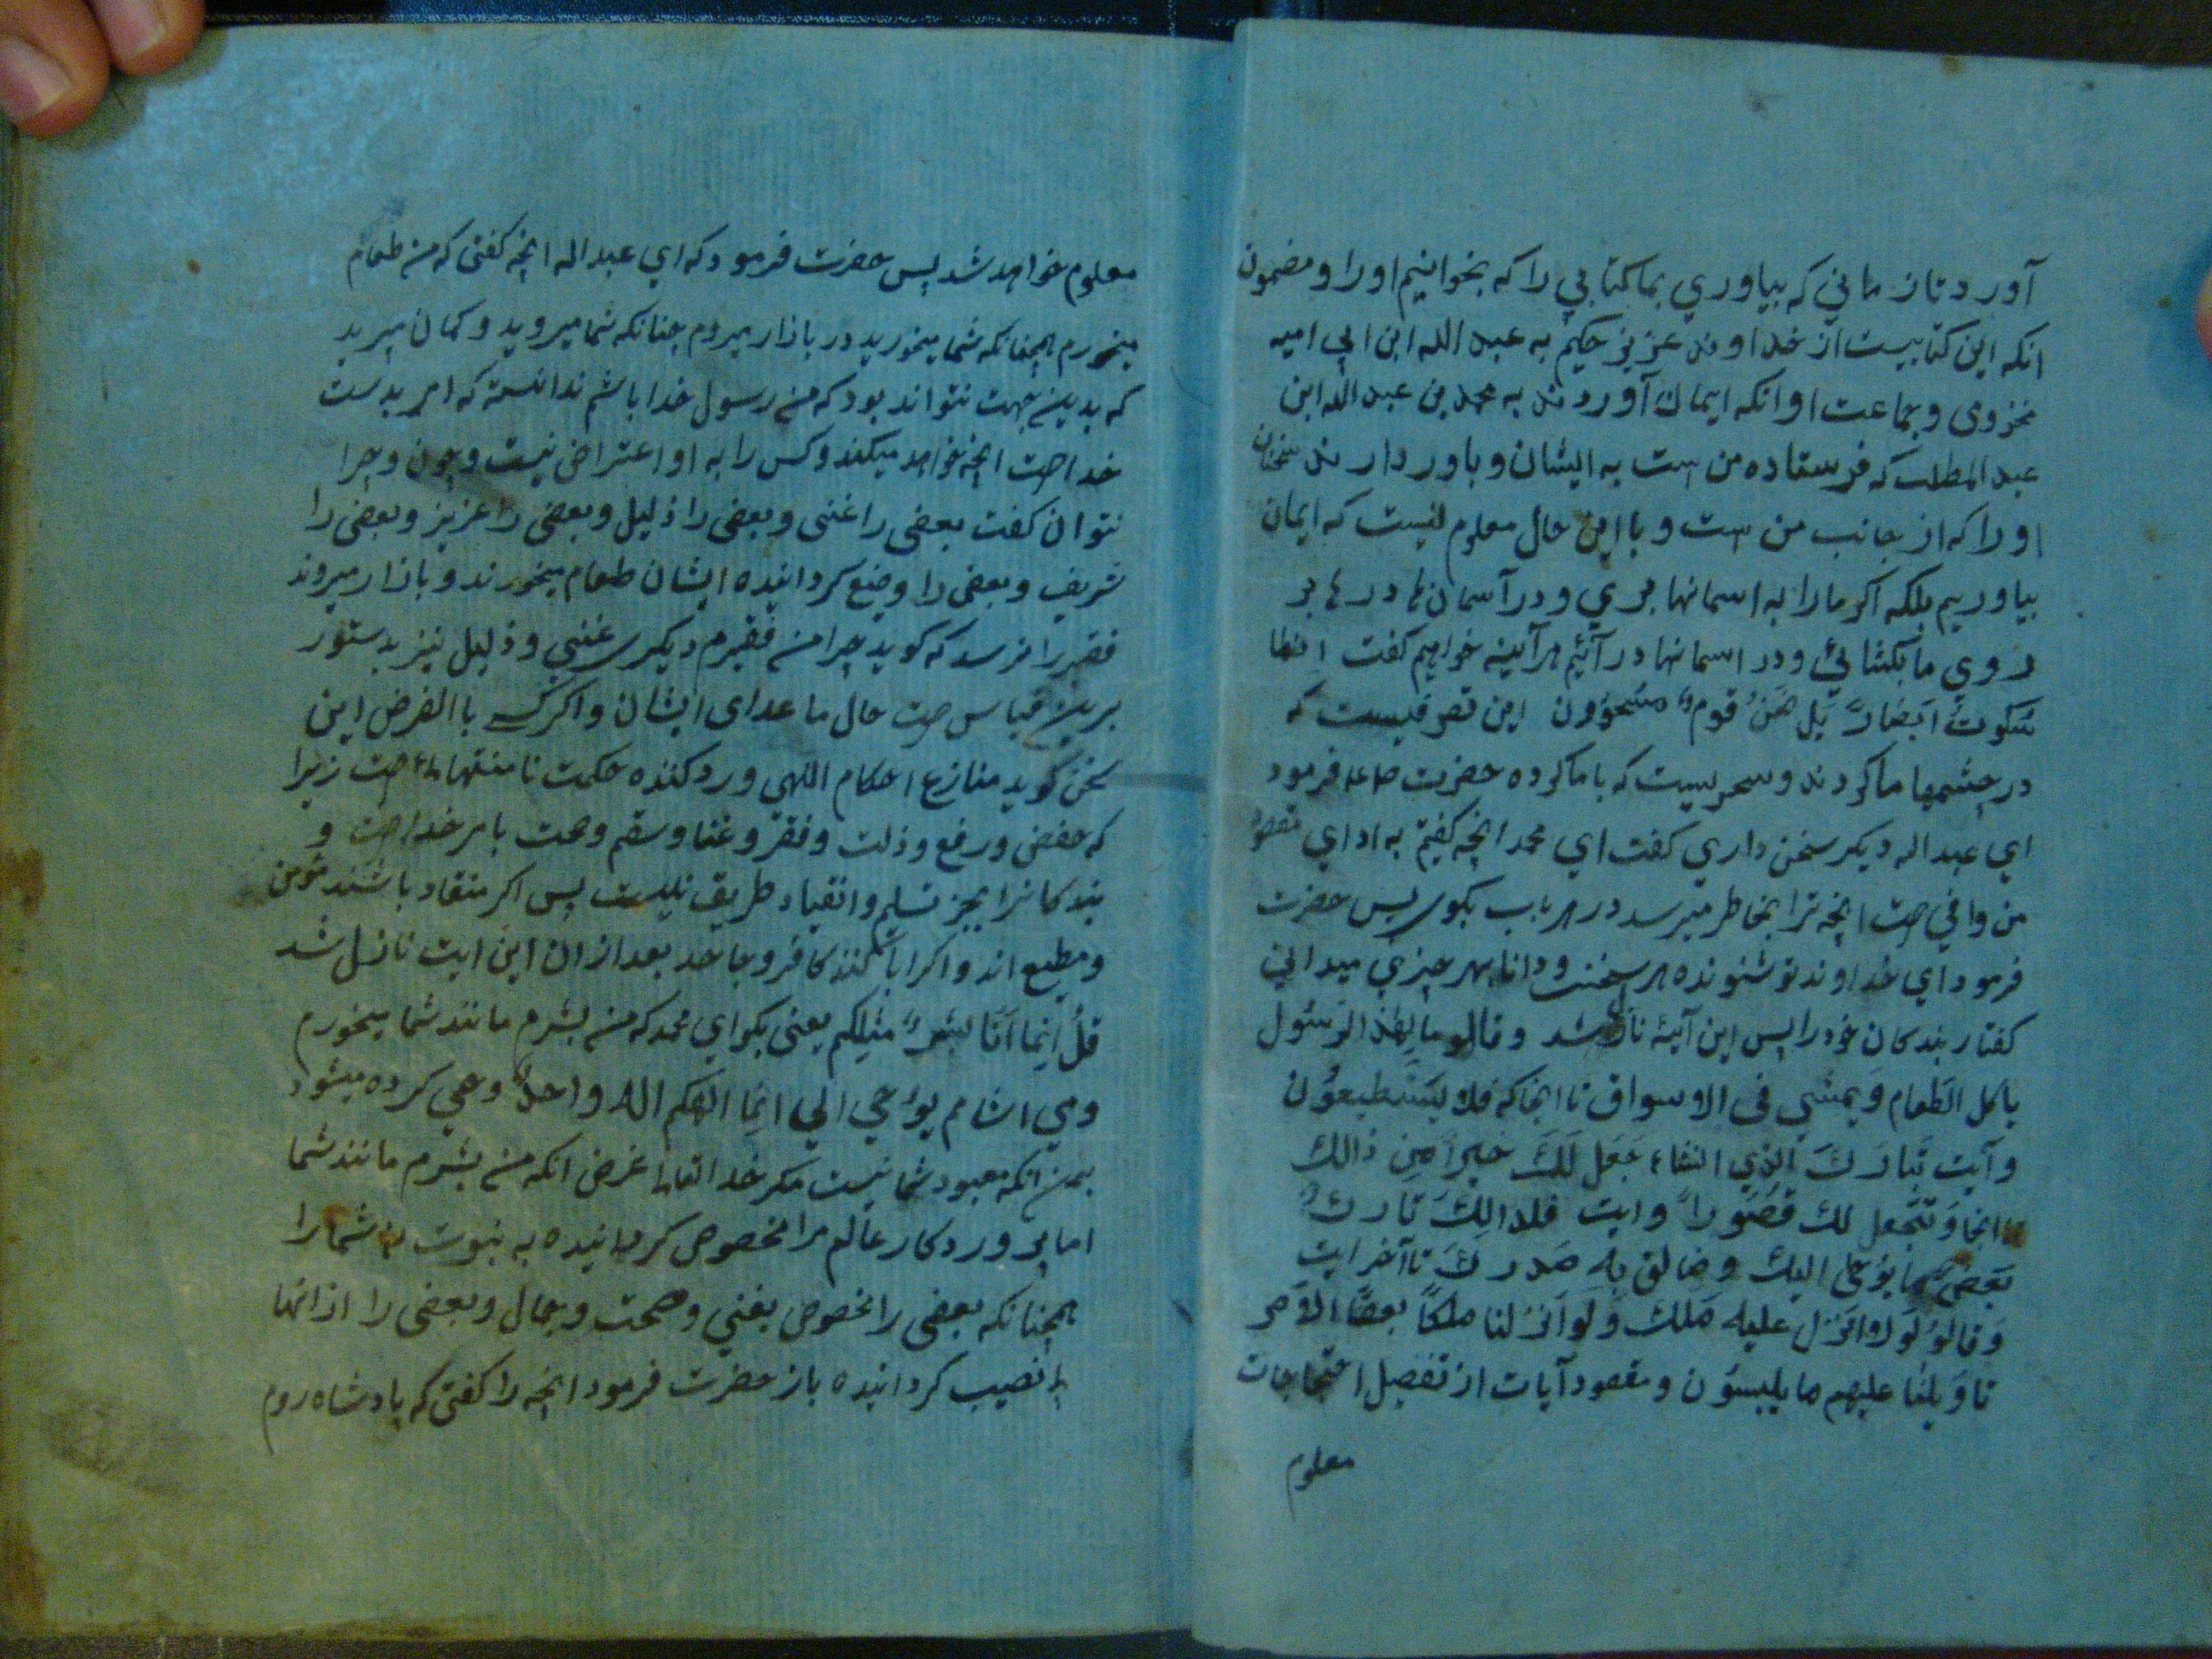 آورد تا زمانی که بیاوری بما کتابی را که بخوانیم اورا و مضمون
انکه این کتابیست از خداوند عزیز حکیم به عبد الله ابن ابی امیه
مخزومی و جماعت او انکه ایمان آوردند به محمد بن عبد الله ابن
عبد المطلب که فرستاده من است به ایشان و باور دارند سخنان
اورا که از جانب من ست و با این حال معلوم نیست که ایمان
بیاوریم بلکه اکر مارا به اسمانها بری و در آسمان ها در ها بر
روی ما بکشائی و در اسمانها در آئیم هر آئینه خواهیم کفت انما
سکوت ابصارً بل نحن قوم مسحورون این تصرفیست که
در چشمها ما کردند و سحریست که با ما کرده حضرت صلعم فرمود
ای عبد اله دیکر سخن داری کفت ای محمد انچه کفتم به ادای مقصود
من وافی است انچه ترا بخاطر میرسد در هر باب بکوی پس حضرت
فرمود ای خداوند تو شنونده هر سخنت و دانا بهر چیزی میدانی
کفتار بندکان خود را پس این آیئه نازل شد و قالو ما لهذ الرسُول
یاکل الطَعام وَ یمشی فی الاسواق تا انجا که فلا یَستطیعوُن
و آیت تَبارَکَ الذی انشاء جَعَل لَکَ خیراً مِن ذالک
تا انجا وَ تَجعل لکَ قصُوراً و ایت فلدالِکَ تارکٌ
بَعض ما یوُحی الیکَ و ضالق بِه صَدرکَ تا آخر ایت
وَ قالوُ لَو لا انَزل علیه مَلک وَ لَو انَزلنا ملکاً بعضَا الاَمر
تا وَ یلبنا علیهم ما یلبسوُن و مقصود آیات از تفصل احتجاجات
معلوم
معلوم خواهد شد پس حضرت فرمود که ای عبد اله انچه کفتی که من طعام
میخورم همچنانکه شما میخورید در بازار میروم چنانکه شما میروید و کمان میبرید
که بدین جهت نتواند بود که من رسول خدا باشم ندانسته که امر بدست
خداست انچه خواهد میکند و کس را به او اعتراض نیست و چون و چرا
نتوان کفت بعضی را غنی و بعضی را ذلیل و بعضی را عزیز و بعضی را
شریف و بعضی را وضیع کردانیده ایشان طعام میخورند و بازار میروند
فقیر را نرسد که کوید چرا من فقیرم دیکری غنی و ذلیل نیز بدستور
برین قیاس ست حال ما عدای ایشان و اکر کسی با الفرض این
سخن کوید منازع احکام اللهی و رد کننده حکمت نا منتها است زیرا
که خفض و رفع و ذلت و فقر و غنا و سقم و صحت بامر خداست و
بندکانرا بجز تسلیم و انقیاد طریق نیست پس اکر منقاد باشند مؤمن
و مطیع اند و اکر ابا کنند کافر و جاحد بعد از ان این ایت نازل شد
قلُ اِنَما اَنَا بشرً مثلکم یعنی بکو ای محمد که من بشرم مانند شما میخورم
و می اشامم یوُحی الی انَِما الهکم اله واحدٌ وحی کرده میشود
بمن انکه معبود شما نیست مکر خدا تعالی غرض انکه من بشرم مانند شما
اما پروردکار عالم مرا مخصوص کردانیده به نبوت نه شما را
همچنانکه بعضی را مخصوص بغنی و صحت و جمال و بعضی را از انها
نصیب کردانیده باز حضرت فرمود انچه را کفتی که پادشاه روم